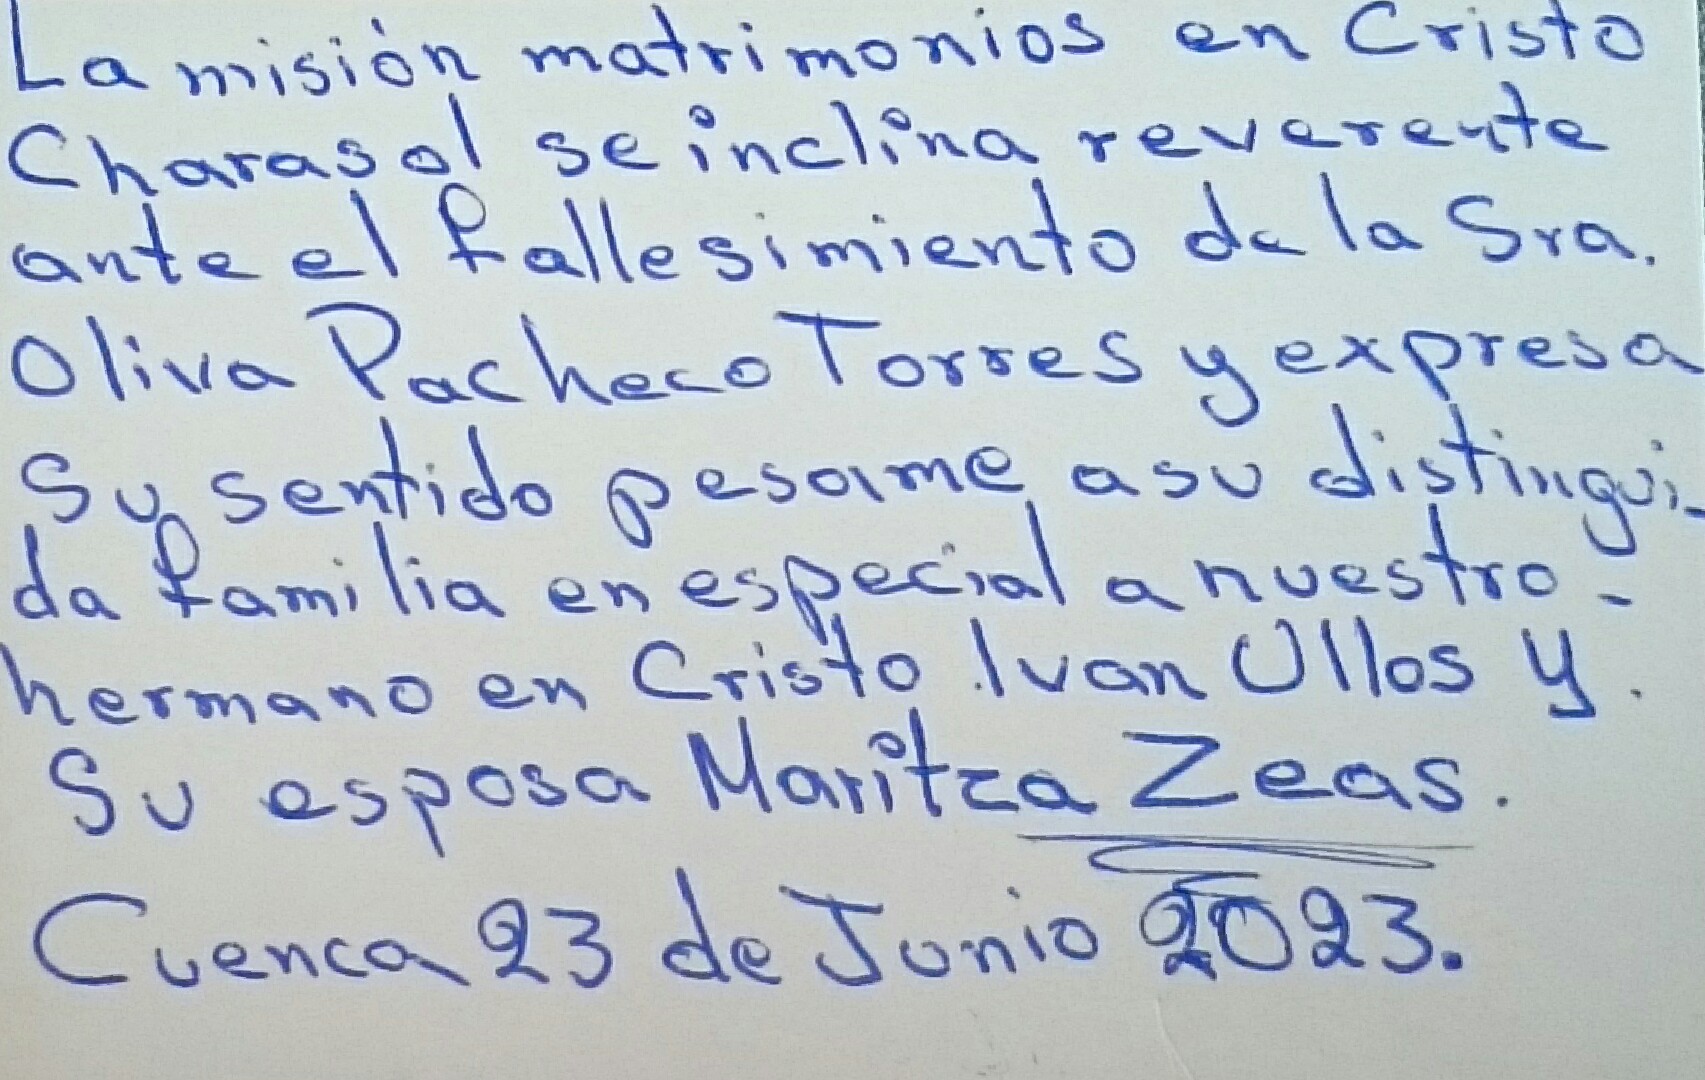 La misión matrimonios en Cristo
Charasol se inclina reverente
ante el fallesimiento de la Sra.
Oliva Pacheco Torres y expresa
Su sentido pesame a su distingui-
da familia en especial a nuestro -
hermano en Cristo Ivan Ullos y.
Su esposa Maritza Zeas.
Cuenca 23 de Junio 2023.